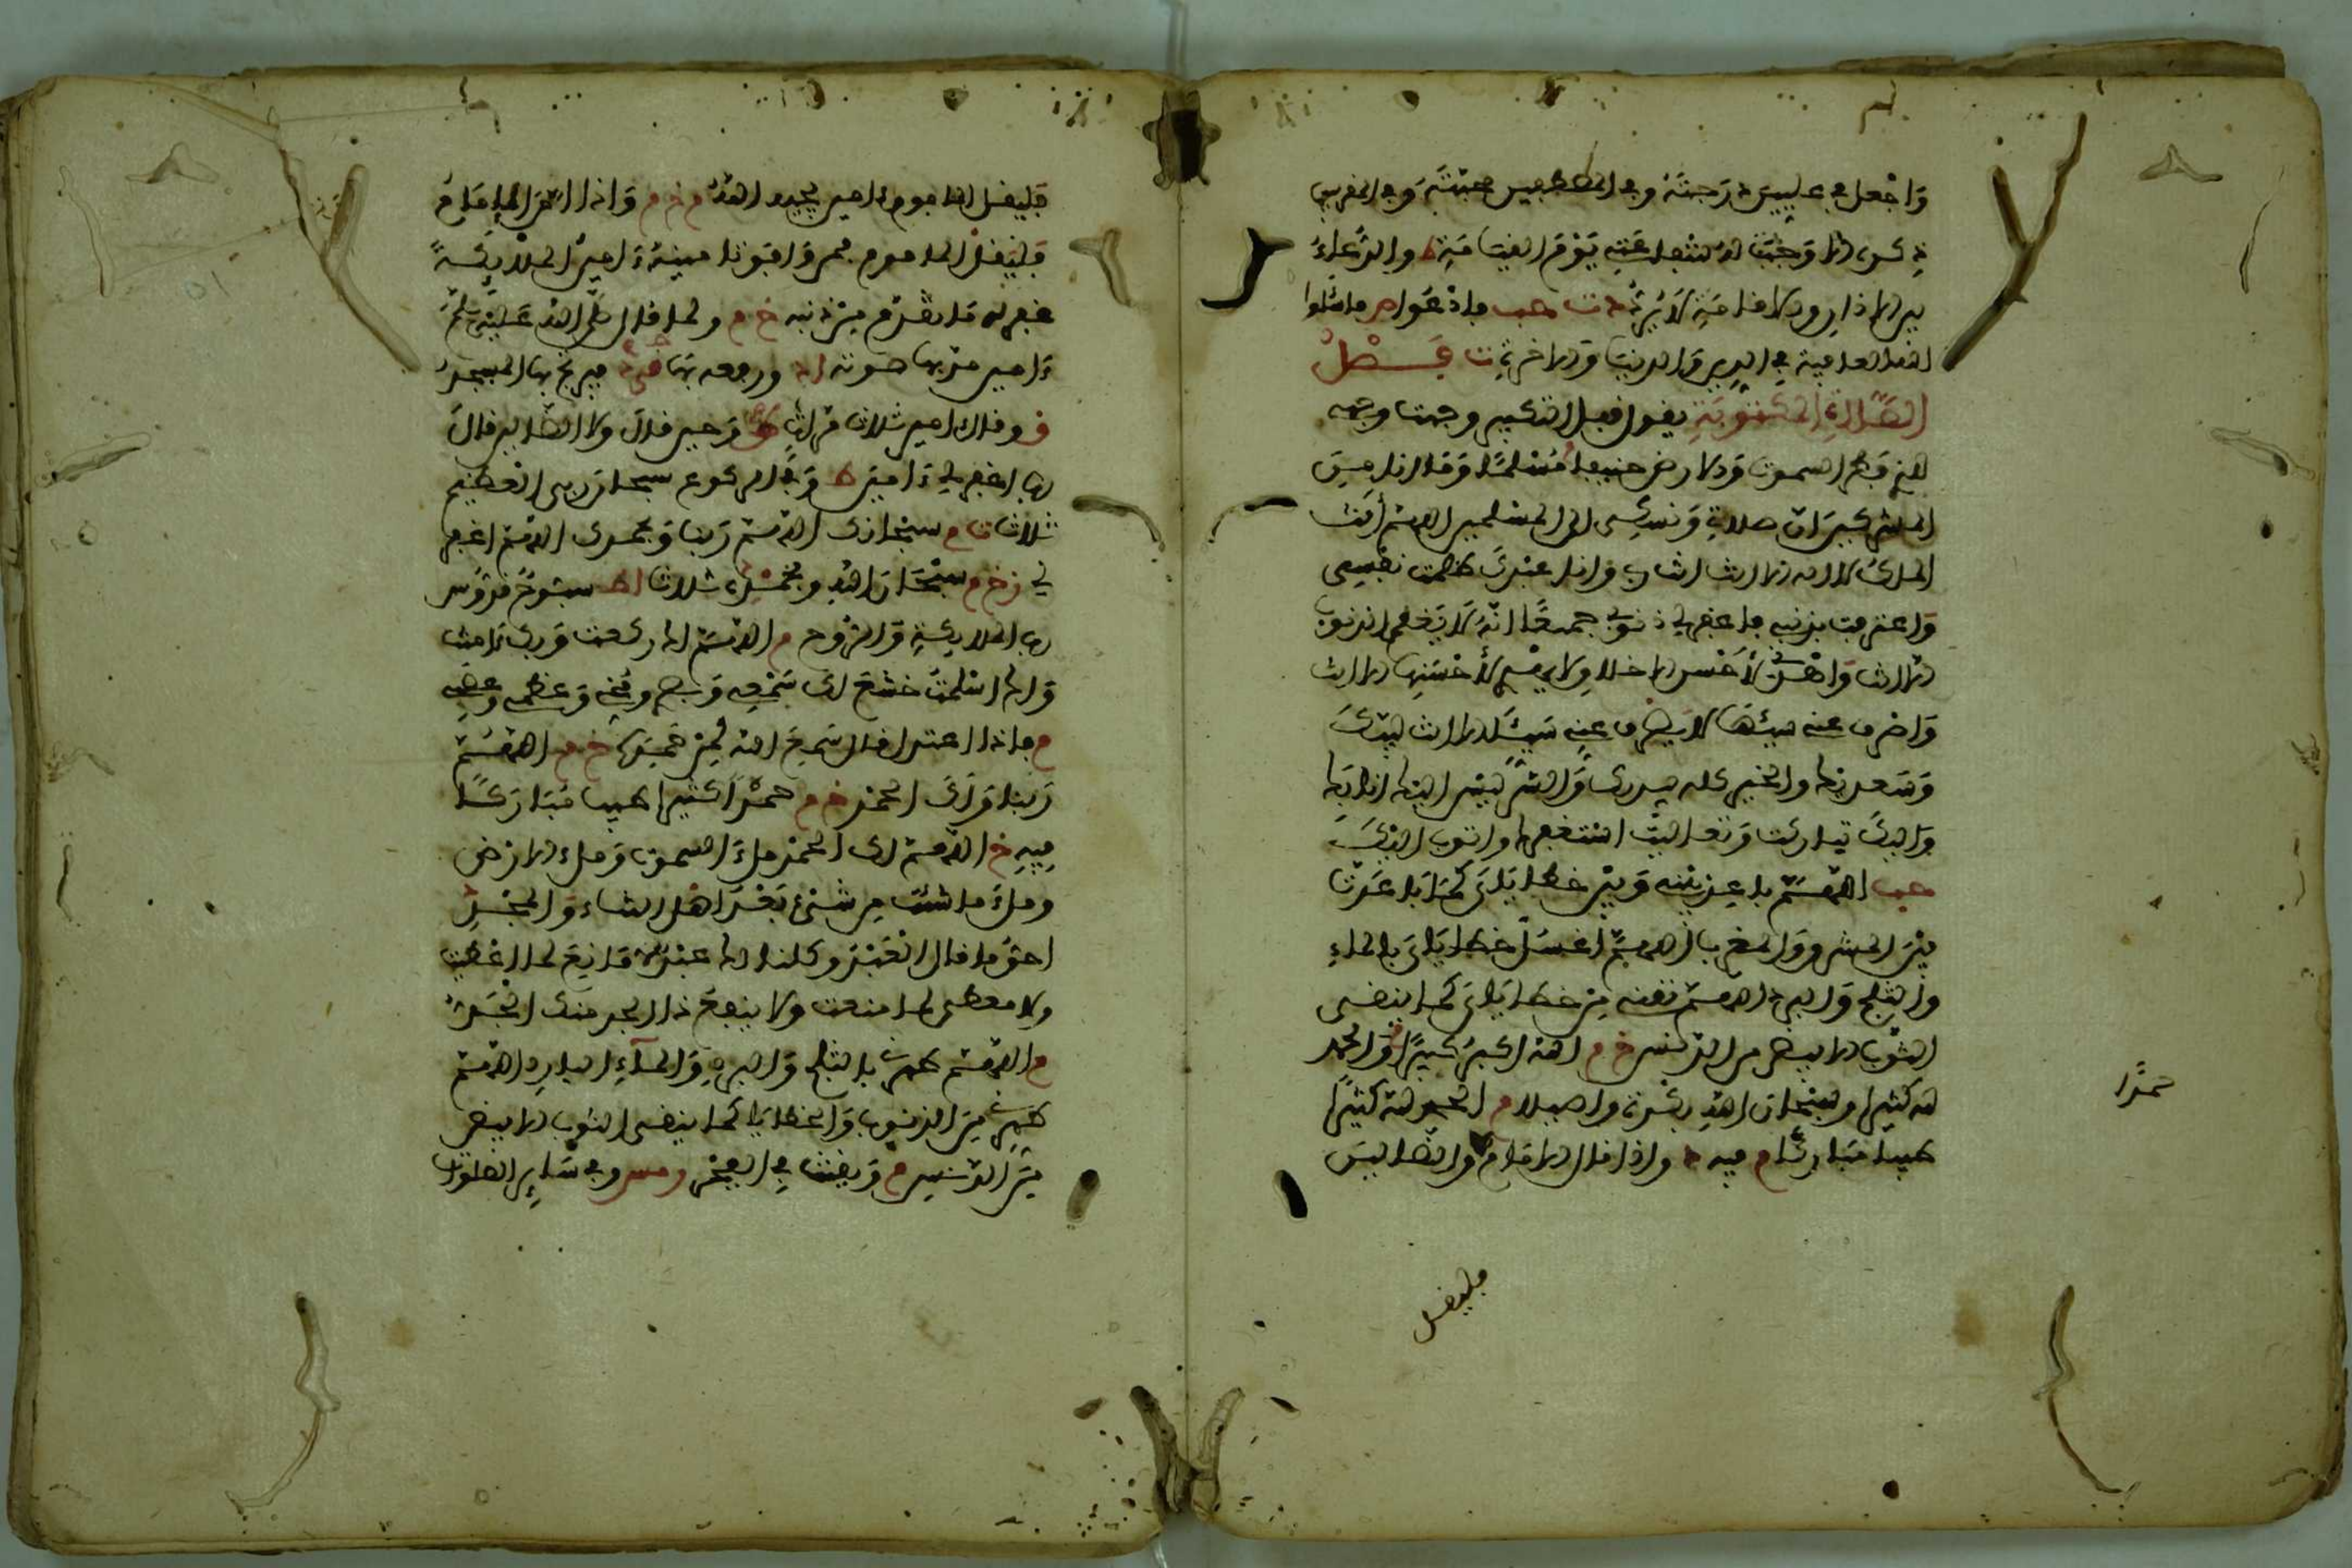 وَاجْعل في عليين دَرجتَهُ وفي المصطفين محبتَه وفي المقربين
ذكره الا وَجَبَتْ له الشفاعة يَوْمَ القيامَةِ ط والدُّعاءُ
بين الاذان والاقامَةِ لا يُرَدُّ د ت حب فادْعُوا ص فاسْئلوا
الله العافية في الدين وَالدنيا وَالاخرة ت فَصْلٌ
الصَّلاةِ المكتوبَةِ يقول قبل التكبير وجهت وجهي
للذي فَطر السموت وَالارض حنيفا مُسْلمًا وَما انا مِنَ
المشركينَ ان صلاتي وَنسكي الى المسلمين اللهم أنت
الملك لا اله الا انت انت ربي وَانا عَبْدكَ ظلمت نفسِى
وَاعترفت بذنبي فاغفر لي ذنوبي جميعًا انّهُ لا يَغفر الذنوب
الا انت وَاهْدني لأَحْسن الاخلاق لا يهْدي لأَحْسَنِها الا انت
وَاصْرف عني سيئَهَا لا يصْرف عنّي سَيئَها الا انت لبيك
وَسَعديك والخير كله بيديك وَالشر ليْسَ اليك انا بَك
وَاليك تباركت وَتعاليتَ استَغفرك واتوب اليْكَ
حب اللهمَّ باعِدْ بيْني وَبيْن خطايايَ كمَا بَاعَدْتَ
بيْنَ المشرق وَالمغرب اللهمَّ اغسل خطايايَ بالماءِ
وَالثلج وَالبرد اللهمَّ نقني مِنْ خطايايَ كما ينقى
الثوب الابيض من الدنس خ م الله اكبَرُ كبيرًا وَالحمد
لله كثيرا وسبْحان اللهِ بكْرة واصيلا م الحمد لله كثيرًا
حمدًا
طيبا مُبَاركًا م فيه د واذا قال الامام ولا الضالينَ
فليقل
فليقل المأموم آمين يجبه اللهُ م خ م وَاذا امَّنَ الإمَامُ
فليُؤمِّن المأموم فمن وَافق تأمينه تأمينُ الملائِكَةِ
غفر له مَا تقدم مِنْ ذنبه خ م ولما قال صلى الله عَليْهِ وسلم
آمين مدّ بها صوته ا د ورفعه بها فيرتج بها المسجد
ق وقال امين ثلاث مرات ط وَحين قال ولا الضالين قال
رب اغفر لي آمين ط وَفي الركوع سبحان ربي العظيم
ثلاثا م سبْحانك اللهم رَبنا وَبحمدك اللهمّ اغفر
لي خ م سبْحَان اللهِ وبحَمْده ثلاثا ا ط سبّوحٌ قدوس
رب الملائكةِ وَالرُّوح م اللهمَّ لك ركعت وَبك آمنت
وَلك اسْلمتُ خشعَ لك سَمْعي وَبصري ومخي وَعظمي وعصبي
م فاذا اعتدل قال سَمع الله لمن حَمِدَه خ م اللهمَّ
رَبنا وَلك الحمد خ م حمْدًا كثيرا طيبا مُبَاركًا
فيهِ خ اللهم لك الحمد ملءَ السموت وَملء الارض
وملءَ ما شئتَ من شيْء بَعْدُ اهْل الثناء وَالمجْدِ
احقّ ما قال العَبْدُ وكلنا لك عبْدٌ لا مَانِعَ لما اعْطيت
ولا معطي لما منعت ولا ينفعُ ذا الجد منك الجَدُّ
م اللهم طهرني بالثلج وَالبردِ وَالمآءِ البارد اللهمّ
طهرني مِنَ الذنوب وَالخطايَا كما ينقى الثوب الابيض
مِنَ الدنس م وَيقنت في الفجْر ومس وفي سَايرِ الصلوات